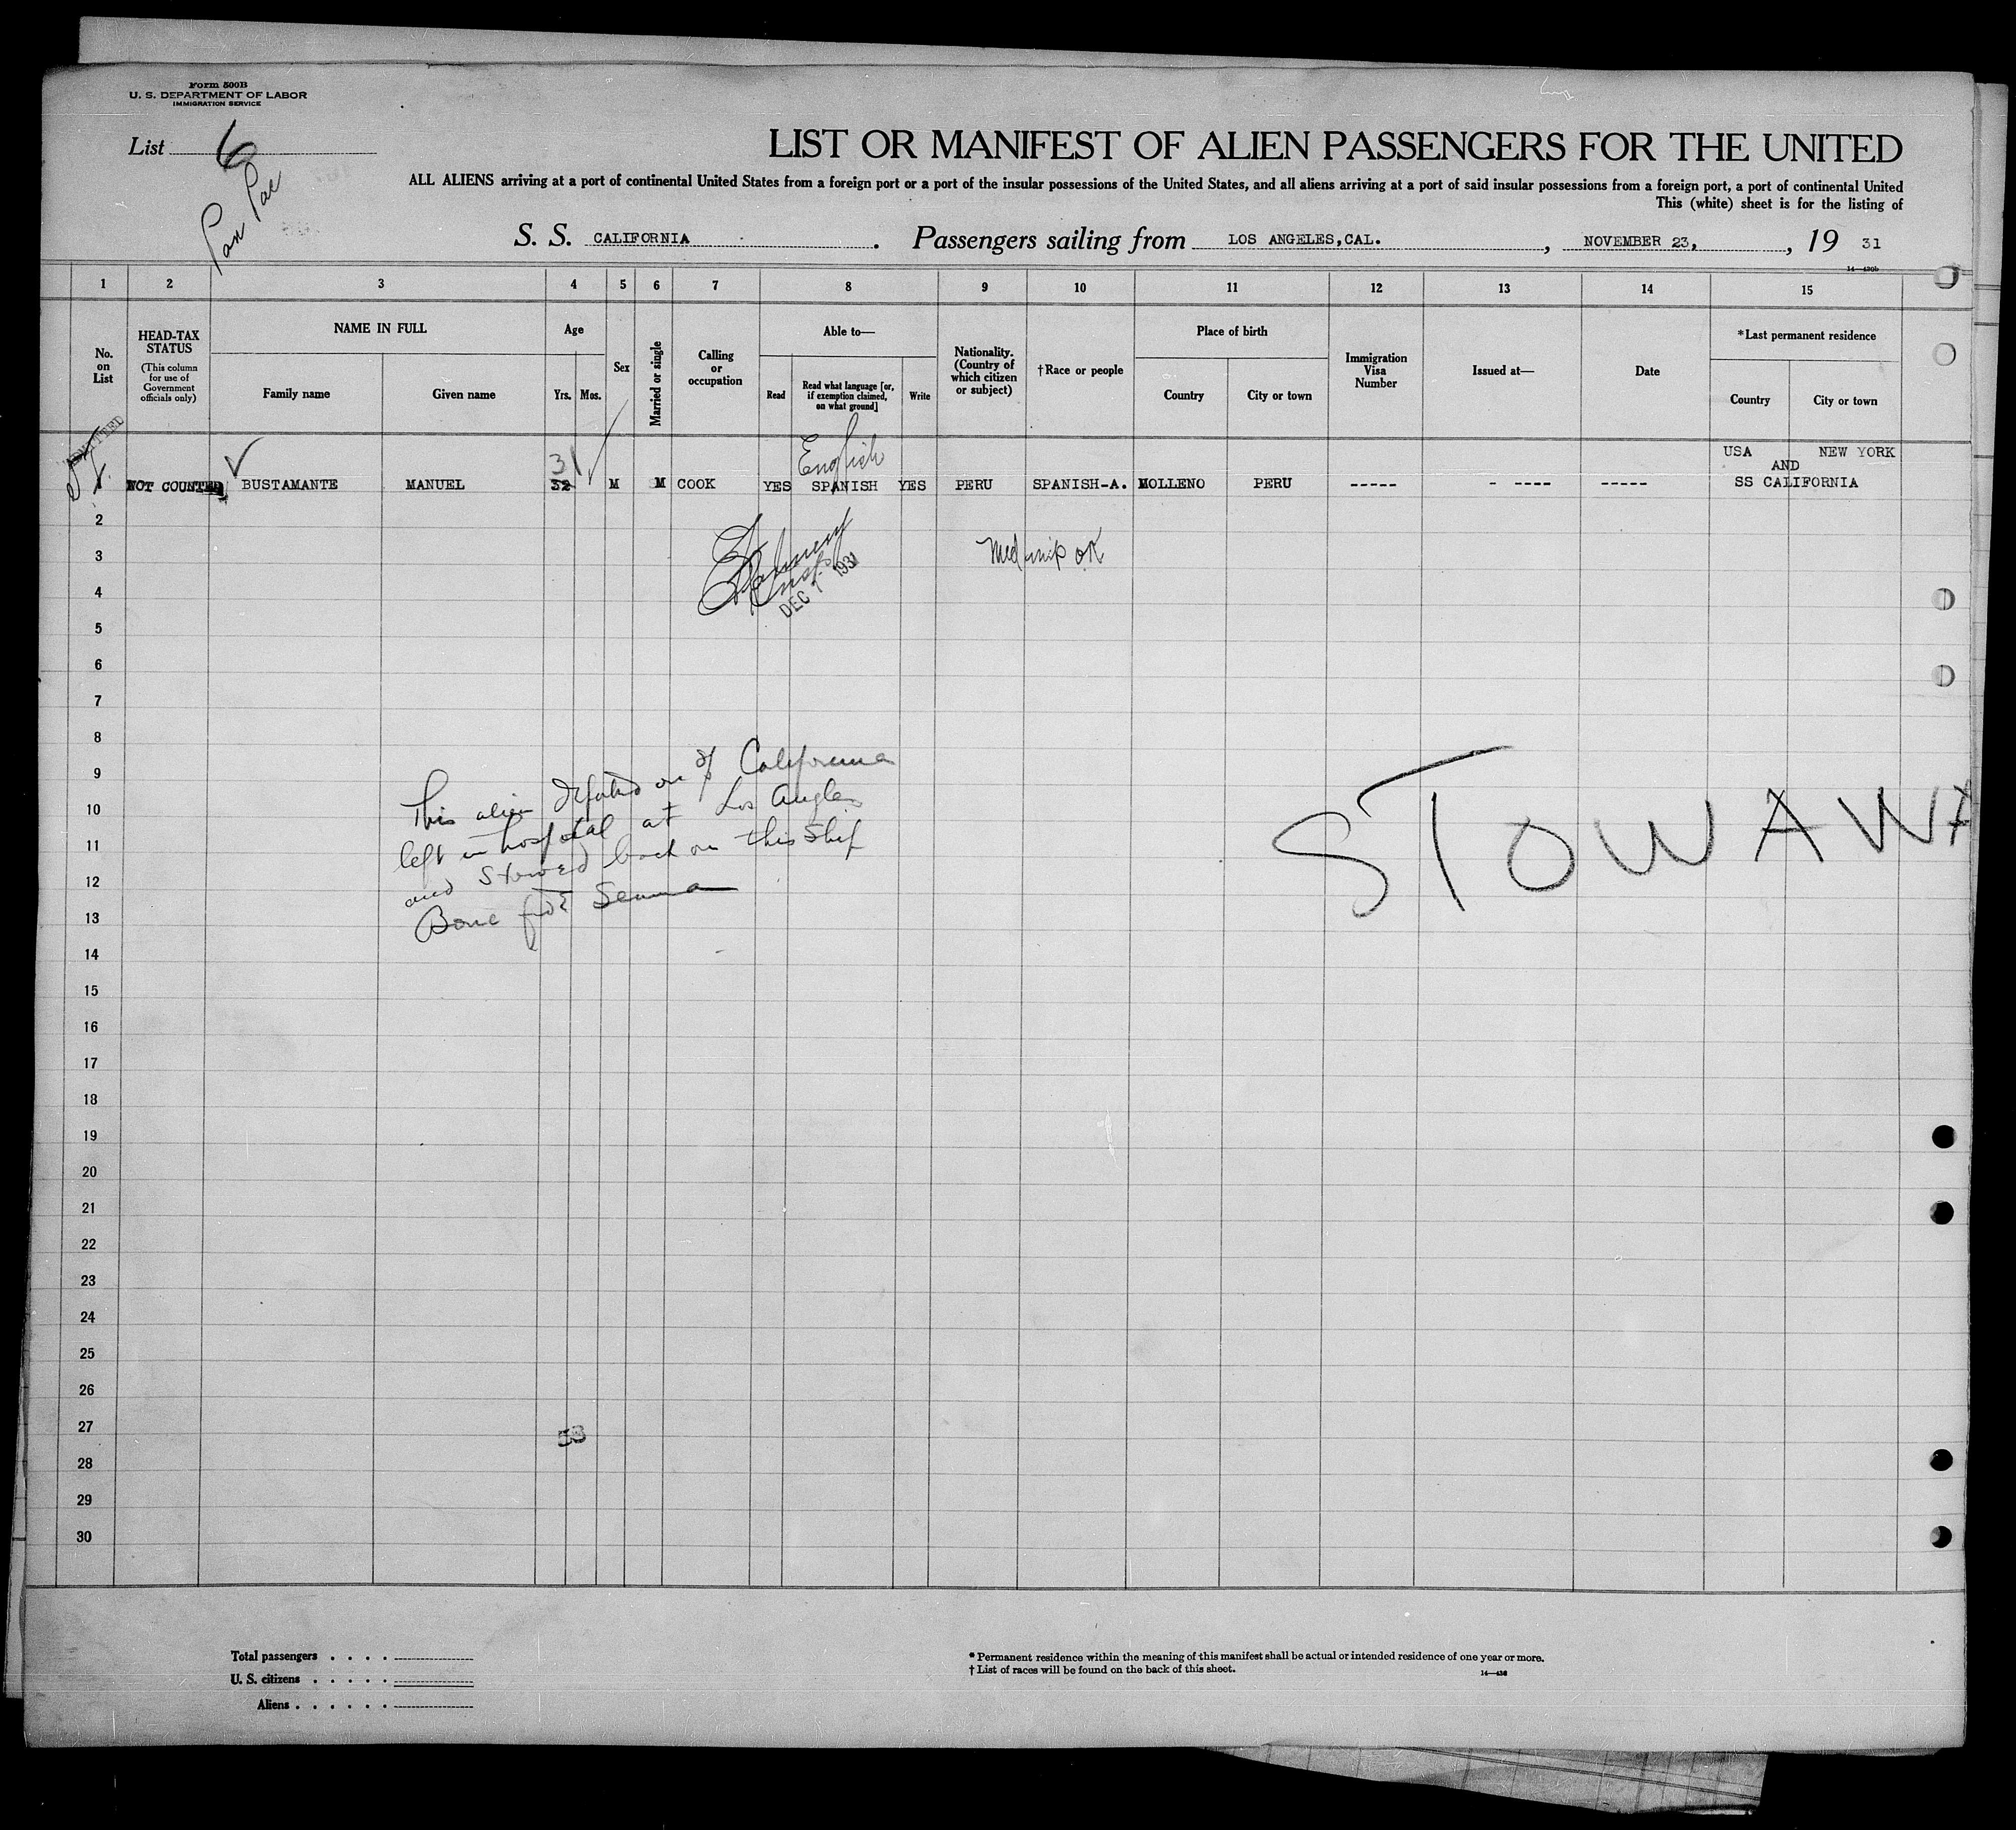 Form 500B
U. S. DEPARTMENT OF LABOR
IMMIGRATION SERVICE
List 6
Pan Pac
LIST OR MANIFEST OF ALIEN PASSENGERS FOR THE UNITED
ALL ALIENS arriving at a port of continental United States from a foreign port or a port of the insular possessions of the United States, and all aliens arriving at a port of said insular possessions from a foreign port, a port of continental United
This (white) sheet is for the listing of
S. S. CALIFORNIA . Passengers sailing from LOS ANGELES,CAL. , NOVEMBER 23, , 19 31
1 2 3 4 5 6 7 8 9 10 11 12 13 14 15
No. on List
HEAD-TAX STATUS
(This column for use of Government officials only)
NAME IN FULL
Family name Given name
Age
Yrs. Mos.
Sex
Married or single
Calling or occupation
Able to—
Read
Read what language [or, if exemption claimed, on what ground]
Write
Nationality. (Country of which citizen or subject)
†Race or people
Place of birth
Country City or town
Immigration Visa Number
Issued at—
Date
*Last permanent residence
Country City or town
ADMITTED
English
USA NEW YORK
AND
31
NOT COUNTED BUSTAMANTE MANUEL 32 M M COOK YES SPANISH YES PERU SPANISH-A. MOLLENO PERU ----- - ---- ----- SS CALIFORNIA
2
3
Med insp OK
DEC 7- 1931
4
5
6
7
8
9
10
11
12
13
This alien on California
left in hospital at Los Angles
and stowed back on this ship
Bone fide Seaman
STOWAWA
14
15
16
17
18
19
20
21
22
23
24
25
26
27
28
29
30
Total passengers . . . .
U. S. citizens . . . . .
Aliens . . . . . .
* Permanent residence within the meaning of this manifest shall be actual or intended residence of one year or more.
† List of races will be found on the back of this sheet.